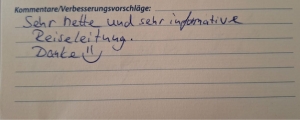 Kommentare/Verbesserungsvorschläge:
Sehr nette und sehr informative
Reiseleitung.
Danke